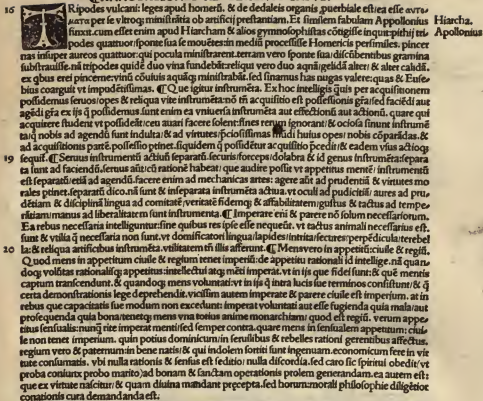 16 TRipodes vulcani: leges apud homerū. & de dedaleis organis ,puerbiale est:ea esse
per se vltroq; ministrātia ob artificij prestantiam. Et similem fabulam Appollonius Hiarcha.
finxit.cum esset enim apud Hiarcham & alios gymnosophistas cōtigisse inquit: Apollonius
pedes quattuor:sponte sua se mouētes:in mediū processisse Homericis persimiles. pincer
nas insuper aureos quattuor:qui pocula ministrarent.terram vero sponte sua: gramina
substrauisse.nā tripodes quidē duo vina fundebāt:reliqui vero duo aquā:gelidā alter: & alter calidā.
ex qbus erei pincerne:vinū cōuiuis aquāq; ministrabāt.sed sinamus has nugas valere:quas & Euse⸗
bius coarguit vt impudētissimas. ¶ Que igitur instrumēta. Ex hoc intelligis quis per acquisitionem
possidemus seruos:opes & reliqua vite instrumēta:nō
agēdi ex ijs q̄ possidemus.sunt enim ea vniuersa instrumēta aut effectionū aut actionū. quare qui
acquirere student vt possideāt:ceu auari facere solent:fines rerum ignorant: & ociosa sinunt instrumē
ta:q̄ nobis ad agendū sunt indulta: & ad virtutes huius opes nobis cōparādas. &
ad acquisitionis partē.possessio ptinet.siquidem q̄ possidētur acquisitio & eadem vsus actioq;
19 sequit. ¶ Seruus instrumentū actiuū separatū.securis:forceps:dolabra & id genus instrumēta:separa
ta sunt ad faciendū.seruus aūt:cū rationē habeat: que audire possit vt appetitus mentē: instrumentū
est separatū:etiā ad agendū.facere enim ad mechanicas artes: agere aūt ad prudentiā & virtutes mo
rales ptinet.separatū dico.nā sunt & inseparata instrumēta actiua.vt oculi ad pudicitiā: aures ad pru⸗
dētiam & disciplinā:lingua ad comitatē:veritatē fidemq; & affabilitatem:gustus & tactus ad tempe⸗
rātiam:manus ad liberalitatem sunt instrumenta. ¶ Imperare enī & parere nō solum necessariorum.
Ea rebus necessaria intelliguntur:sine quibus res ipse esse nequeūt. vt tactus animali necessarius est.
sunt & vtilia q̄ necessaria non sunt.vt domificatori lingua:lapides:secures:perpēdicula:terebel
20 la: & reliqua artificibus instrumēta.vtilitatem illis afferunt. ¶ Mens vero in appetitū:ciuile & regiū.
Quod mens in appetitum ciuile & regium tenet imperiū:de appetitu rationali id intellige.nā
doq; volūtas rationalisq; appetitus:intellectui atq; mēti imperat.vt in ijs que fidei sunt: & que mentis
captum transcendunt. & quandoq; mens voluntati:vt in ijs q̄ intra lucis sue terminos consistunt: & q̄
certa demonstrationis lege deprehendit.vicissim autem imperate & parere ciuile est imperium. at in
rebus que capacitatis sue modum non excedunt: imperat voluntati aut esse fugienda quia mala:aut
prosequenda quia bona:tenetq; mens vna totius anime monarchiam: quod est regiū. verum appe⸗
titus sensualis:nunq̄ rite imperat menti:sed semper contra.quare mens in sensualem appetitum: ciui
le non tenet imperium. quin potius dominicum:in seruilibus & rebelles rationi gerentibus affectus.
regium vero & paternum:in bene natis: & qui indolem fortiti sunt ingenuam.economicum fere in vir
tute consumatis. vbi nulla rationis & sensus est seditio: nulla discordia.sed caro sic spiritui obedit: vt
proba coniunx probo marito:ad bonam & sanctam operationis prolem generandam.ea autem est:
que ex virtute nascitur: & quam diuina mandant precepta.sed horum:morali philosophie diligētiot
conationis cura demandanda est.